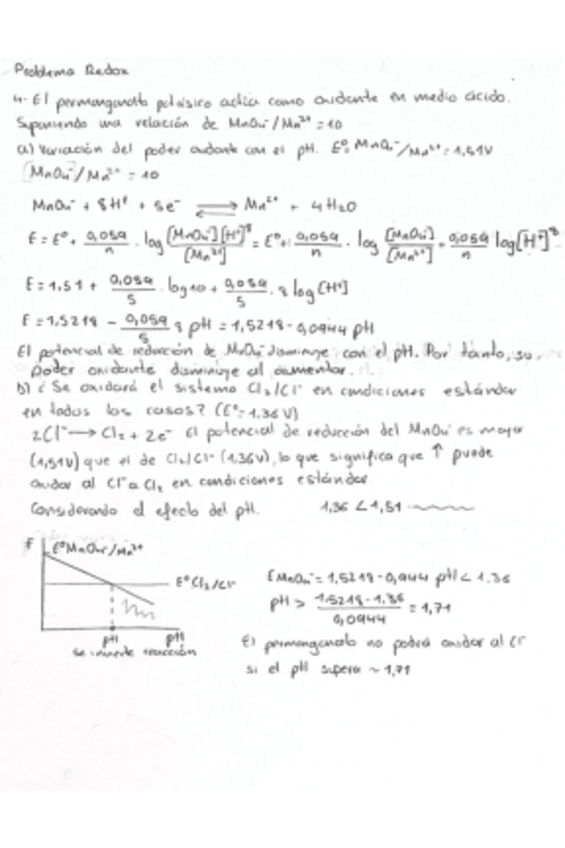 Problema Redox
4- El permanganato potásico actúa como oxidante en medio ácido.
Suponiendo una relación de MnO4⁻/Mn²⁺ = 10
a) Variación del poder oxidante con el pH. E⁰= MnO4⁻/Mn²⁺ = 1,51V
[MnO4⁻/Mn²⁺ = 10
MnO4⁻ + 8H⁺ + 5e⁻ ⇌ Mn²⁺ + 4H2O
E = E⁰ + 0,059/n · log [MnO4⁻][H⁺]⁸/[Mn²⁺] = E⁰ + 0,059/n · log [MnO4⁻]/[Mn²⁺] + 0,059/n log[H⁺]⁸
E = 1,51 + 0,059/5 · log 10 + 0,059/5 · 8 log [H⁺]
E = 1,5218 - 0,059/5 8 pH = 1,5218 - 0,0944 pH
El potencial de reducción de MnO4⁻ disminuye con el pH. Por tanto, su
poder oxidante disminuye al aumentar.
b) ¿Se oxidará el sistema Cl2/Cl⁻ en condiciones estándar
en todos los casos? (E⁰= 1,36 V)
2Cl⁻ → Cl2 + 2e⁻ El potencial de reducción del MnO4⁻ es mayor
(1,51V) que el de Cl2/Cl⁻ (1,36V), lo que significa que ↑ puede
oxidar al Cl⁻ a Cl2 en condiciones estándar.
Considerando el efecto del pH. 1,36 < 1,51
E E⁰MnO4⁻/Mn²⁺
E⁰Cl2/Cl⁻
pH pH
se invierte reacción
EMnO4⁻ = 1,5218 - 0,944 pH < 1.36
pH > 1,5218 - 1,36/0,0944 = 1,71
El permanganato no podrá oxidar al Cl⁻
si el pH supera ~ 1,71